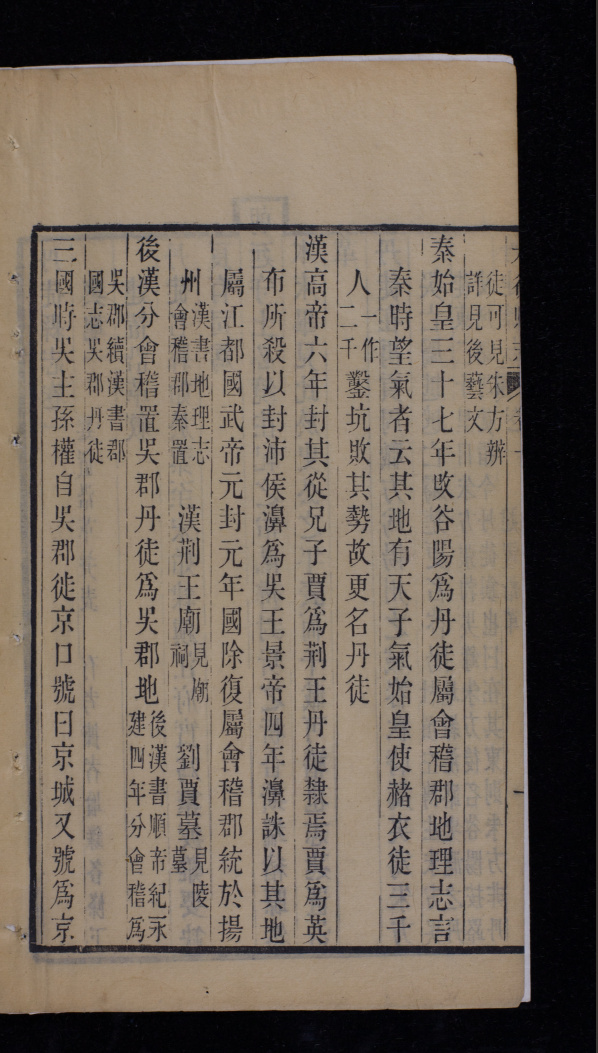 徒可見朱方辨
詳見後藝文
秦始皇三十七年改谷陽爲丹徒屬會稽郡地理志言
秦時望氣者云其地有天子氣始皇使赭衣徒三千
人一作二千鑿坑敗其勢故更名丹徒
漢高帝六年封其從兄子賈爲荆王丹徒隸焉賈爲英
布所殺以封沛侯濞爲吳王景帝四年濞誅以其地
屬江都國武帝元封元年國除復屬會稽郡統於揚
州漢書地理志會稽郡秦置 漢荆王廟見廟祠 劉賈墓見陵墓
後漢分會稽置吳郡丹徒爲吳郡地後漢書順帝紀永建四年分會稽爲
吳郡續漢書郡國志吳郡丹徒
三國時吳主孫權自吳郡徙京口號曰京城又號爲京